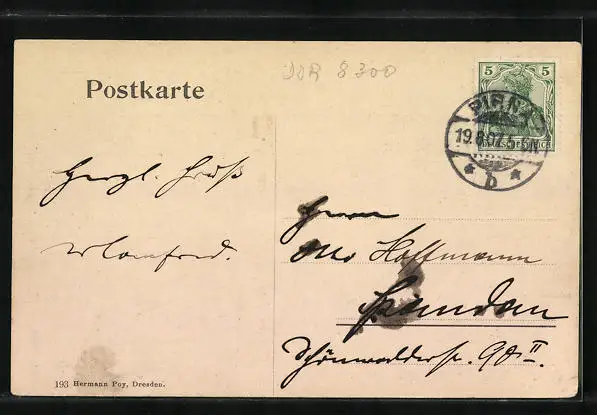 DDR 8300
Postkarte
5 5
PIRNA
19.8.07.
DEUTSCHES REICH
* b *
Herzl. Gruß
Herrn
Otto Hoffmann
Spandau
Schönwalderstr. 98 II.
193 Hermann Poy, Dresden.